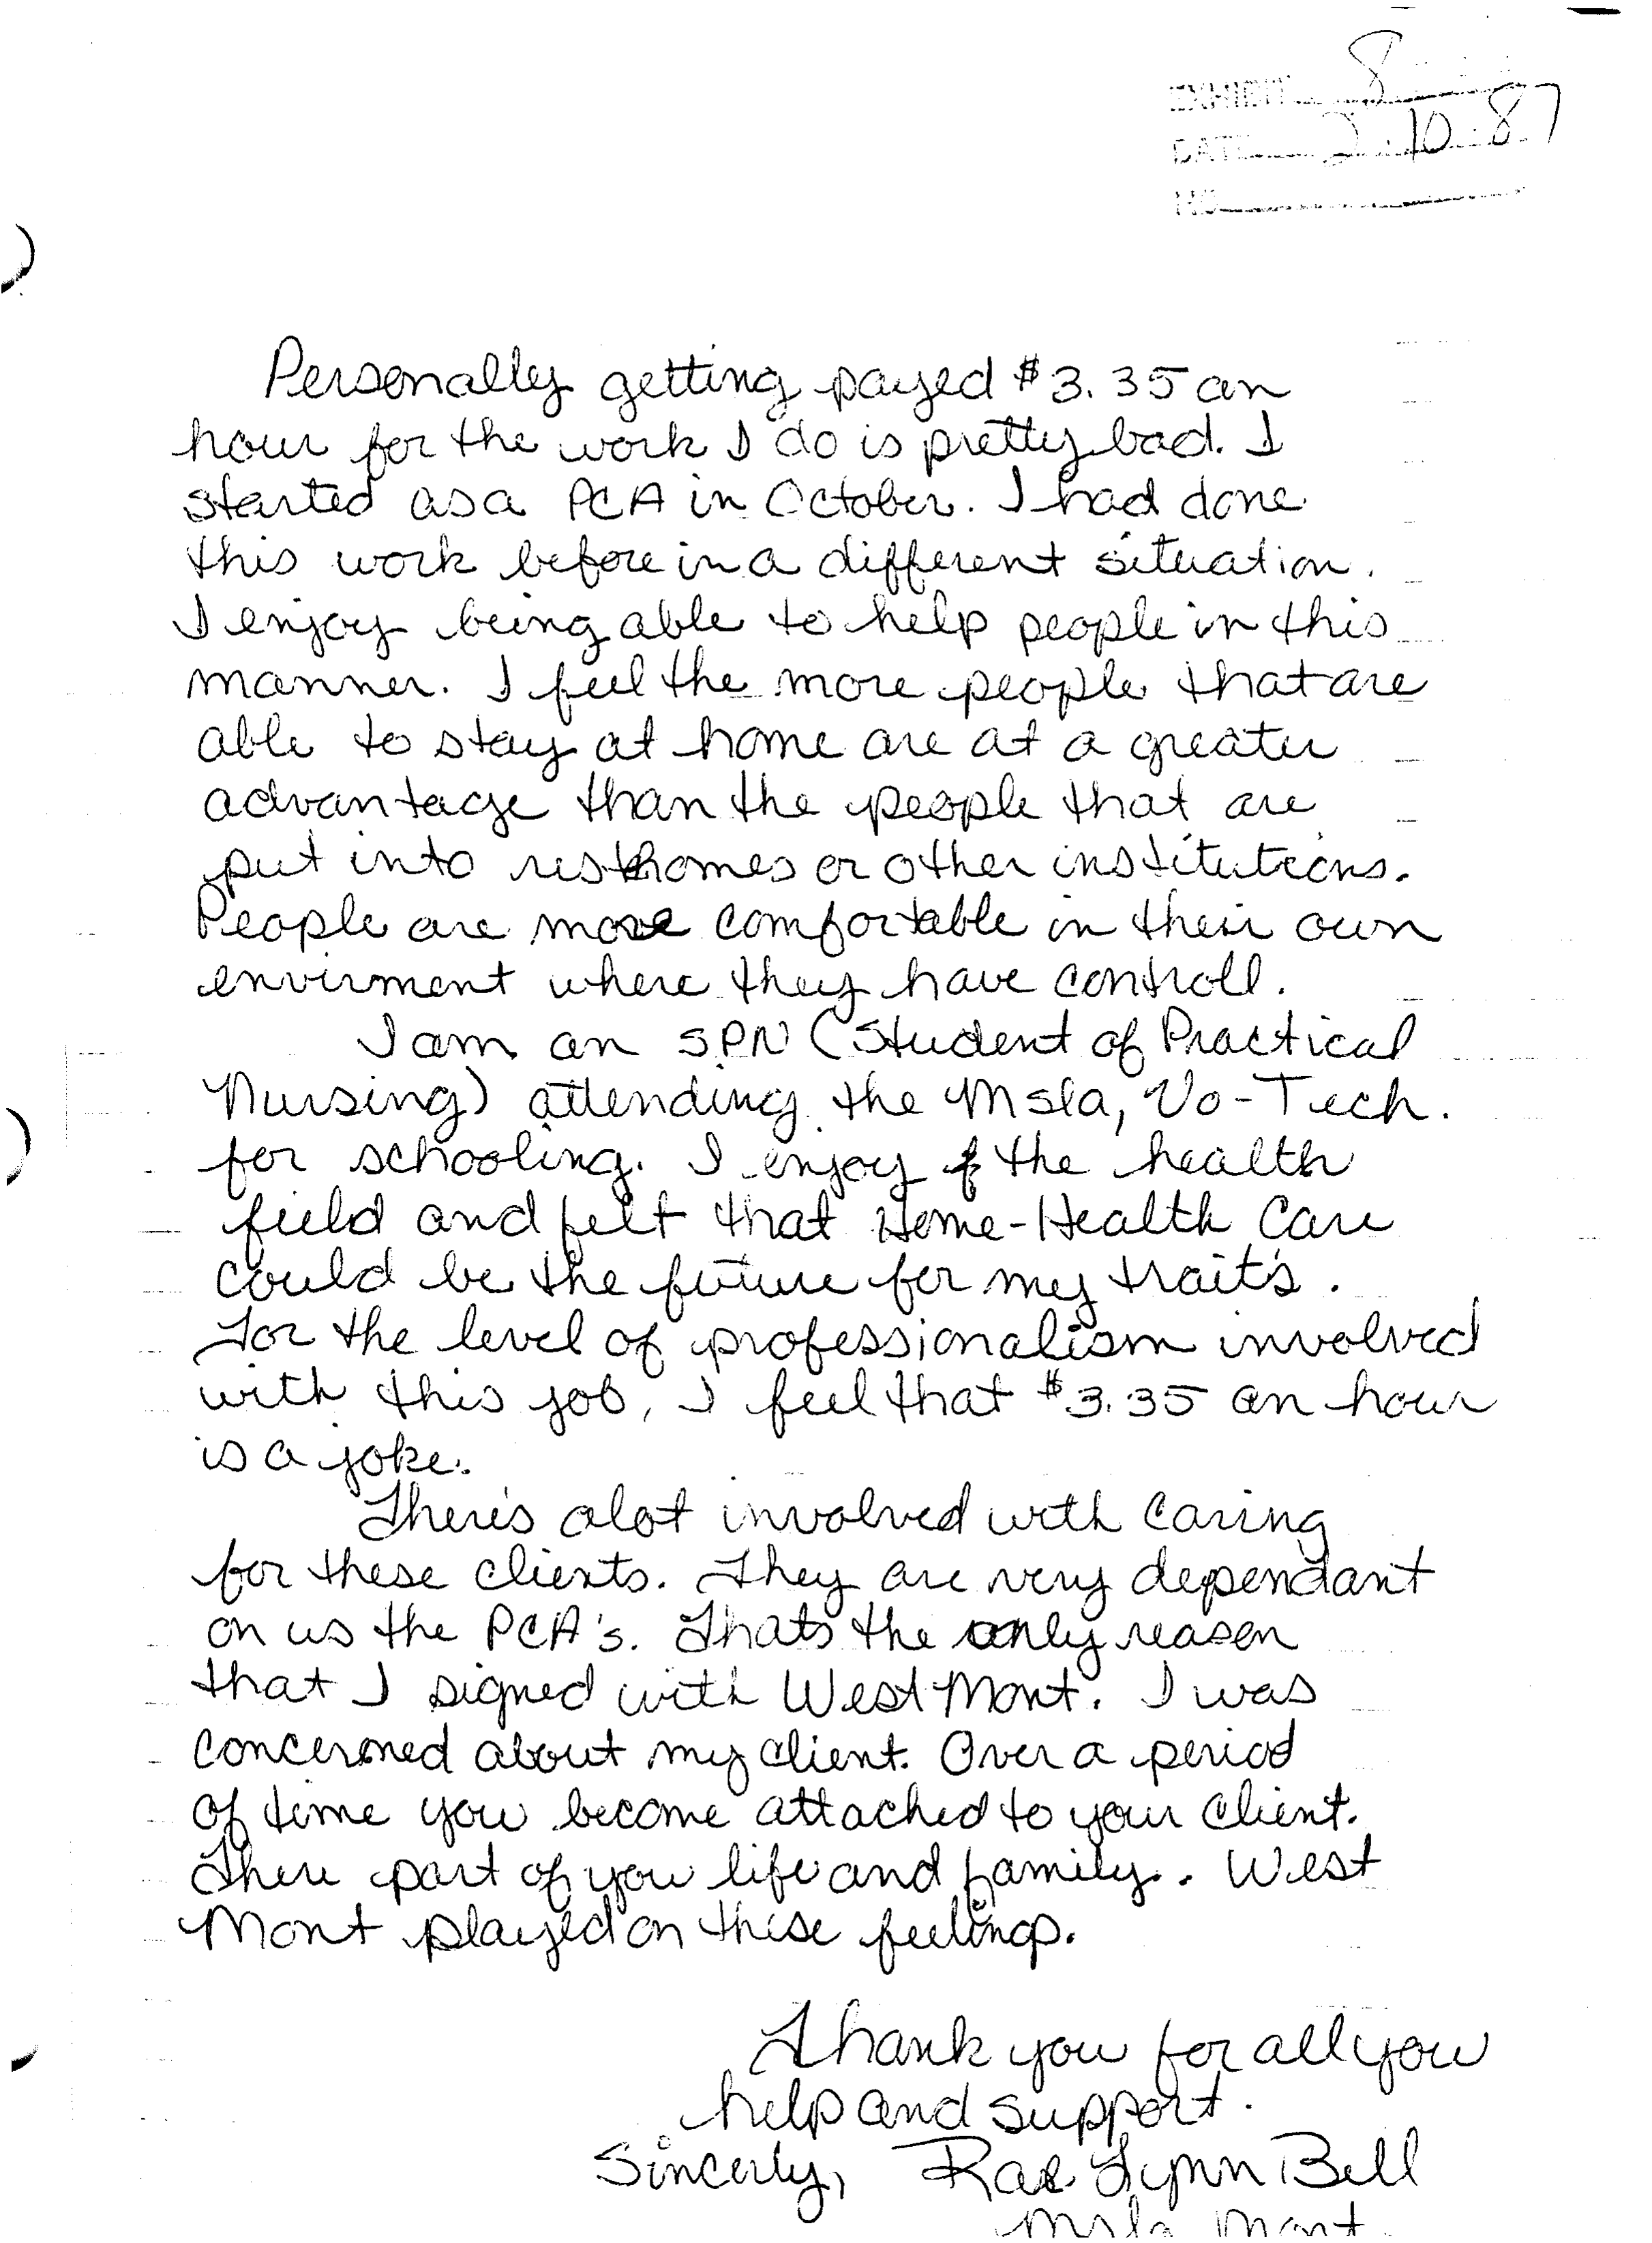 EXHIBIT 8
DATE 2.10.87
Personally getting payed $3.35 an
hour for the work I do is pretty bad. I
started as a PCA in October. I had done
this work before in a different situation.
I enjoy being able to help people in this
manner. I feel the more people that are
able to stay at home are at a greater
advantage than the people that are
put into resthomes or other institutions.
People are more comfortable in their own
envirment where they have controll.
I am an SPN (Student of Practical
Nursing) attending the Msla, Vo-Tech.
for schooling. I enjoy the health
field and felt that Home-Health Care
could be the future for my trait's.
For the level of professionalism involved
with this job, I feel that $3.35 an hour
is a joke.
There's alot involved with caring
for these clients. They are very dependant
on us the PCA's. Thats the only reason
that I signed with West Mont. I was
concerned about my client. Over a period
of time you become attached to your client.
There part of you life and family. West
Mont played on these feelings.
Thank you for all you
help and support.
Sincerly, Rae Lynn Bell
Msla Mont.